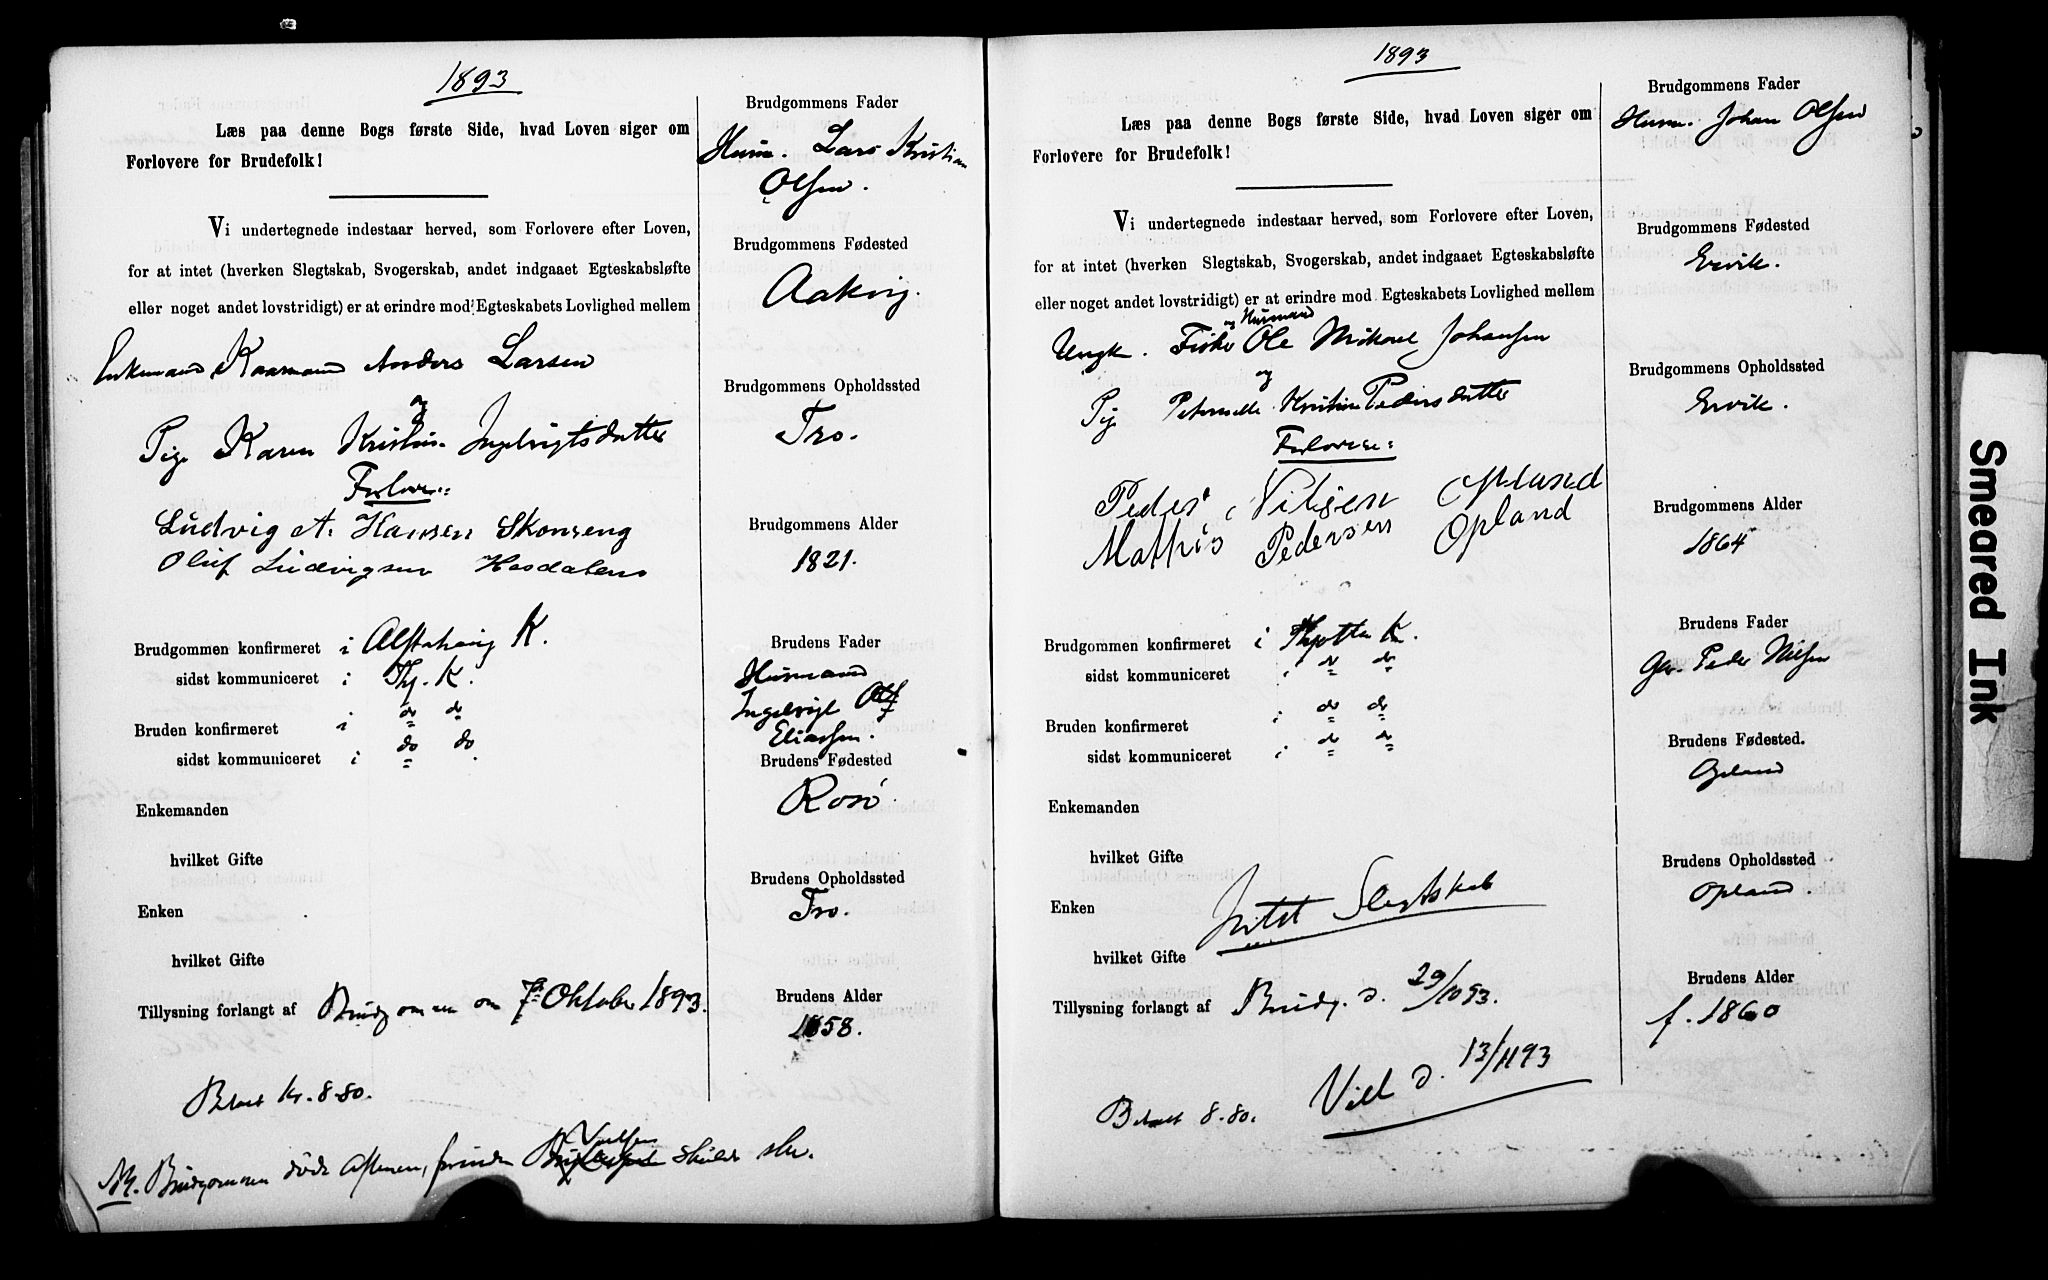 1893
Læs paa denne Bogs første Side, hvad Loven siger om
Forlovere for Brudefolk!
Vi undertegnede indestaar herved, som Forlovere efter Loven,
for at intet (hverken Slegtskab, Svogerskab, andet indgaaet Egteskabsløfte
eller noget andet lovstridigt) er at erindre mod Egteskabets Lovlighed mellem
Enkemand Kaarmand Anders Larsen
og
Pige Karen Kristin. Ingebrigtsdatter
Forlovere:
Ludvig A. Hansen Skonseng
Oluf Ludvigsen Hesdalens
Brudgommen konfirmeret i Alstahaug K.
sidst kommuniceret i Thj. K.
Bruden konfirmeret i do do
sidst kommuniceret i do do.
Enkemanden
hvilket Gifte
Enken
hvilket Gifte
Tillysning forlangt af Brudgommen om 7de Oktober 1893.
Betalt Kr. 8-80.
NB. Brudgommen døde Aftenen, forinden Vielsen skulde ske.
Brudgommens Fader
Husm. Lars Kristian
Olsen.
Brudgommens Fødested
Aakvig.
Brudgommens Opholdssted
Tro.
Brudgommens Alder
1821.
Brudens Fader
Husmand
Ingebrigt
Eliassen.
Brudens Fødested
Rosø
Brudens Opholdssted
Tro.
Brudens Alder
1858.
1893
Læs paa denne Bogs første Side, hvad Loven siger om
Forlovere for Brudefolk!
Vi undertegnede indestaar herved, som Forlovere efter Loven,
for at intet (hverken Slegtskab, Svogerskab, andet indgaaet Egteskabsløfte
eller noget andet lovstridigt) er at erindre mod Egteskabets Lovlighed mellem
og Husmand
Ungk. Fisker Ole Mikael Johansen
og
Pige Peternelle Kristine Pedersdatter
Forlovere:
Peder Nilsen Opland
Mathis Pedersen Opland
Brudgommen konfirmeret i Thjøtta K.
sidst kommuniceret i do do
Bruden konfirmeret i do do
sidst kommuniceret i do do
Enkemanden
hvilket Gifte
Enken
Intet Slegtskab
hvilket Gifte
Tillysning forlangt af Brudg. d. 29/10 93.
Viet d. 13/11 93
Betalt 8.80.
Brudgommens Fader
Husm. Johan Olsen
Brudgommens Fødested
Ervik.
Brudgommens Opholdssted
Ervik.
Brudgommens Alder
1864
Brudens Fader
Gbr. Peder Nilsen
Brudens Fødested.
Opland
Brudens Opholdssted
Opland.
Brudens Alder
f. 1860
Smeared Ink